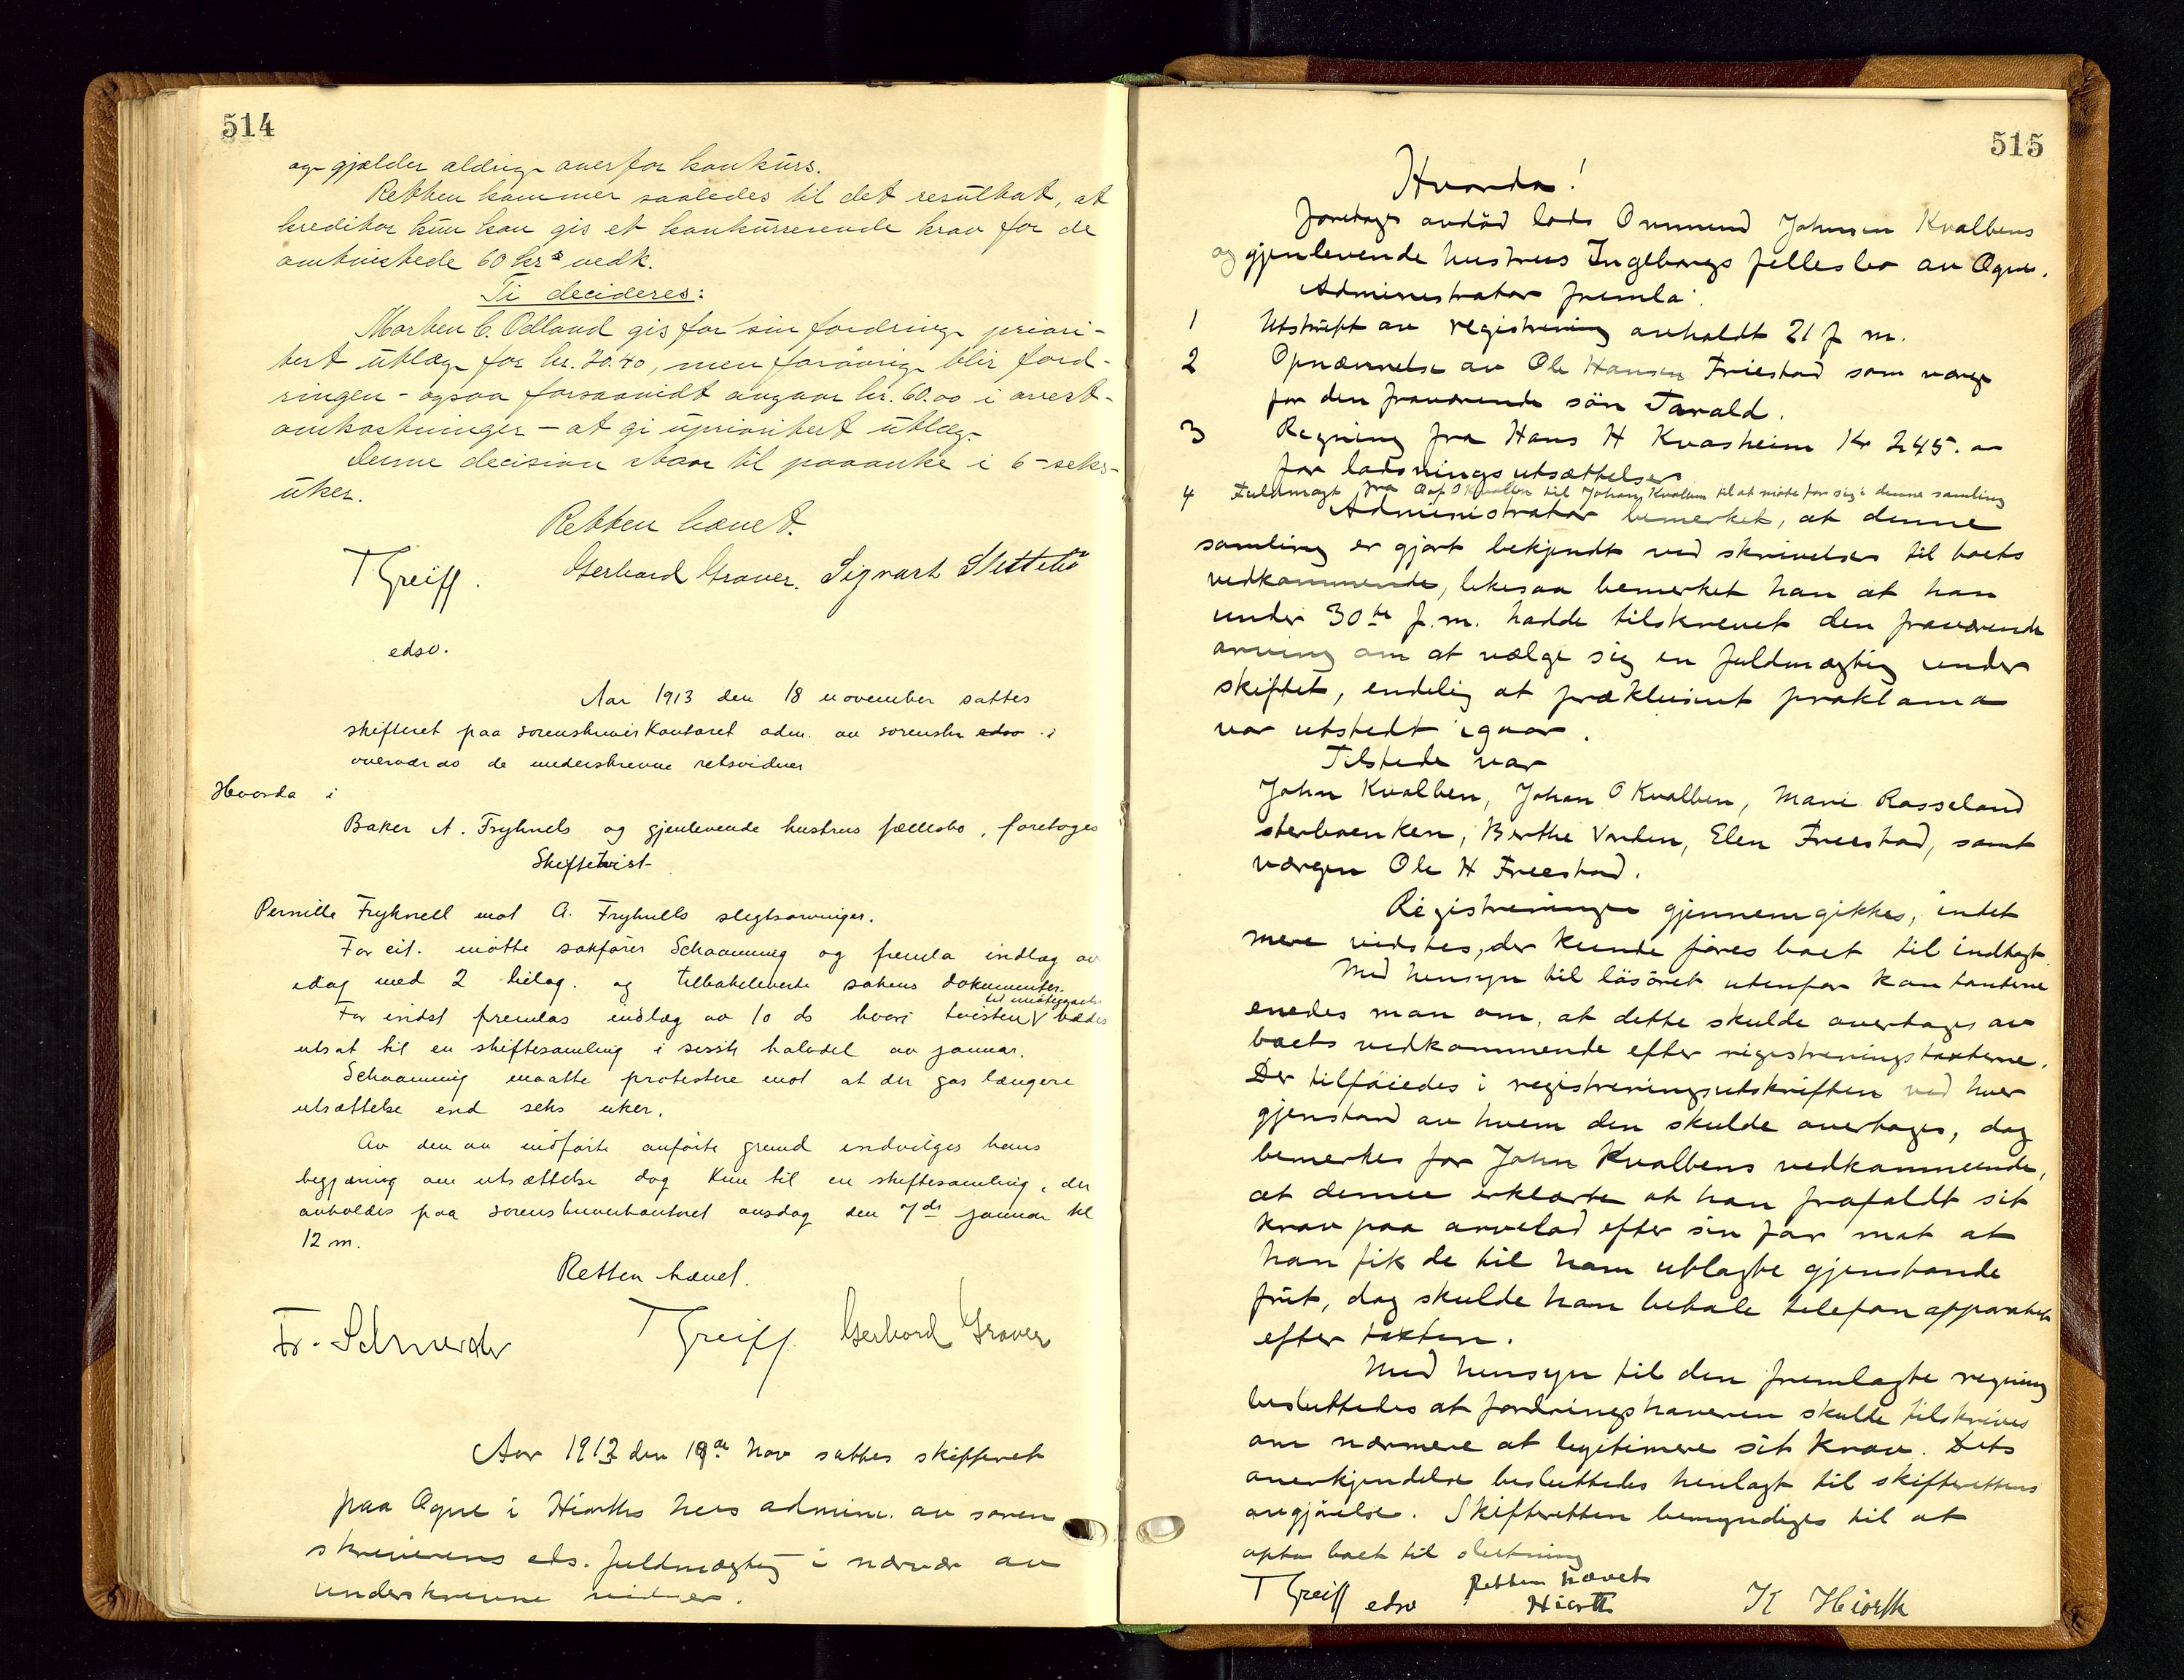 514
og gjælder aldrig overfor konkurs.
Retten kommer saaledes til det resultat, at
kreditor kun kan gis et konkurrerende krav for de
omtvistede 60 kr vedk.
Ti decideres:
Morten C. Ødland gis for sin fordring priori-
tert utlæg for kr. 70.40, men forøvrig blir ford-
ringen - ogsaa forsaavidt angaar kr. 60.00 i arrest-
omkostninger - at gi uprioritert utlæg.
Denne decision staar til paaanke i 6 - seks -
uker.
Retten hævet.
T Greiff. Gerhard Graver. Sigvart Slettebø
edsv.
Aar 1913 den 18 november sattes
skifteret paa sorenskriverkontoret adm. av sorenskr edsv i
overvær av de underskrevne retsvidner
Hvorda i
Baker A. Fryknels og gjenlevende hustrus fællesbo, foretoges
Skiftetvist
Pernille Fryknell mot A. Fryknells slegtsarvinger.
For cit. møtte sakfører Schaanning og fremla indlæg av
idag med 2 bilag. og tilbakeleverte sakens dokumenter.
til imøtegaaelse
For indst fremlas indlæg av 10 ds hvori tvisten V bedes
utsat til en skiftesamling i sidste halvdel av januar.
Schaanning maatte protestere mot at der gas længere
utsættelse end seks uker.
Av den av indstevnte anførte grund indvilges hans
begjæring om utsættelse dog kun til en skiftesamling, der
avholdes paa sorenskriverkontoret onsdag den 7de januar kl
12 m.
Retten hævet.
Fr. Schrøder T Greiff. Gerhard Graver
Aar 1913 den 19de Nov sattes skifteret
paa Ogne i Hiorths hus admin. av soren
skriverens eds. fuldmægtig i nærvær av
underskrevne vidner.
515
Hvorda!
foretoges avdød lods Ommund Johnsen Kvalbens
og gjenlevende hustrus Ingeborgs fellesbo av Ogne.
Administrator fremla:
1 Utskrift av registrering avholdt 21 f m.
2 Opnævnelse av Ole Hansen Friestad som verge
for den fraværende søn Tarald.
3 Regning fra Hans H Kvasheim Kr 245.
for lodsningsutsættelser
4 Fuldmagt fra Olaf O Kvalben til Johan Kvalben til at møte for sig i denne samling
Administrator bemerket, at denne
samling er gjort bekjendt ved skrivelser til boets
vedkommende, likesaa bemerket han at han
under 30te f.m. hadde tilskrevet den fraværende
arving om at vælge sig en fuldmægtig under
skiftet, endelig at præklusivt proklama
var utstedt igaar.
Tilstede var
John Kvalben, Johan O Kvalben, Marie Rasseland
sterboenken, Berthe Varden, Elen Freestad, samt
værgen Ole H Freestad.
Registreringen gjennemgikkes, intet
mere vidstes, der kunde føres boet til indtægt.
Med hensyn til løsøret utenfor kontanterne
enedes man om, at dette skulde overtages av
boets vedkommende efter registreringstaxterne.
Der tilføiedes i registreringsutskriften ved hver
gjenstand av hvem den skulde overtages, dog
bemerkes for John Kvalbens vedkommende,
at denne erklærte at han frafaldt sit
krav paa arvelod efter sin far mot at
han fik de til ham utlagte gjenstande
frit, dog skulde han betale telefonapparatet
efter taxten.
Med hensyn til den fremlagte regning
besluttedes at fordringshaveren skulde tilskrives
om nærmere at legitimere sit krav. Dets
anerkjendelse besluttedes henlagt til skifterettens
avgjørelse. Skifteretten bemyndiges til at
opta boet til slutning
Retten hævet
T Greiff edsv Hiorth K Hiorth